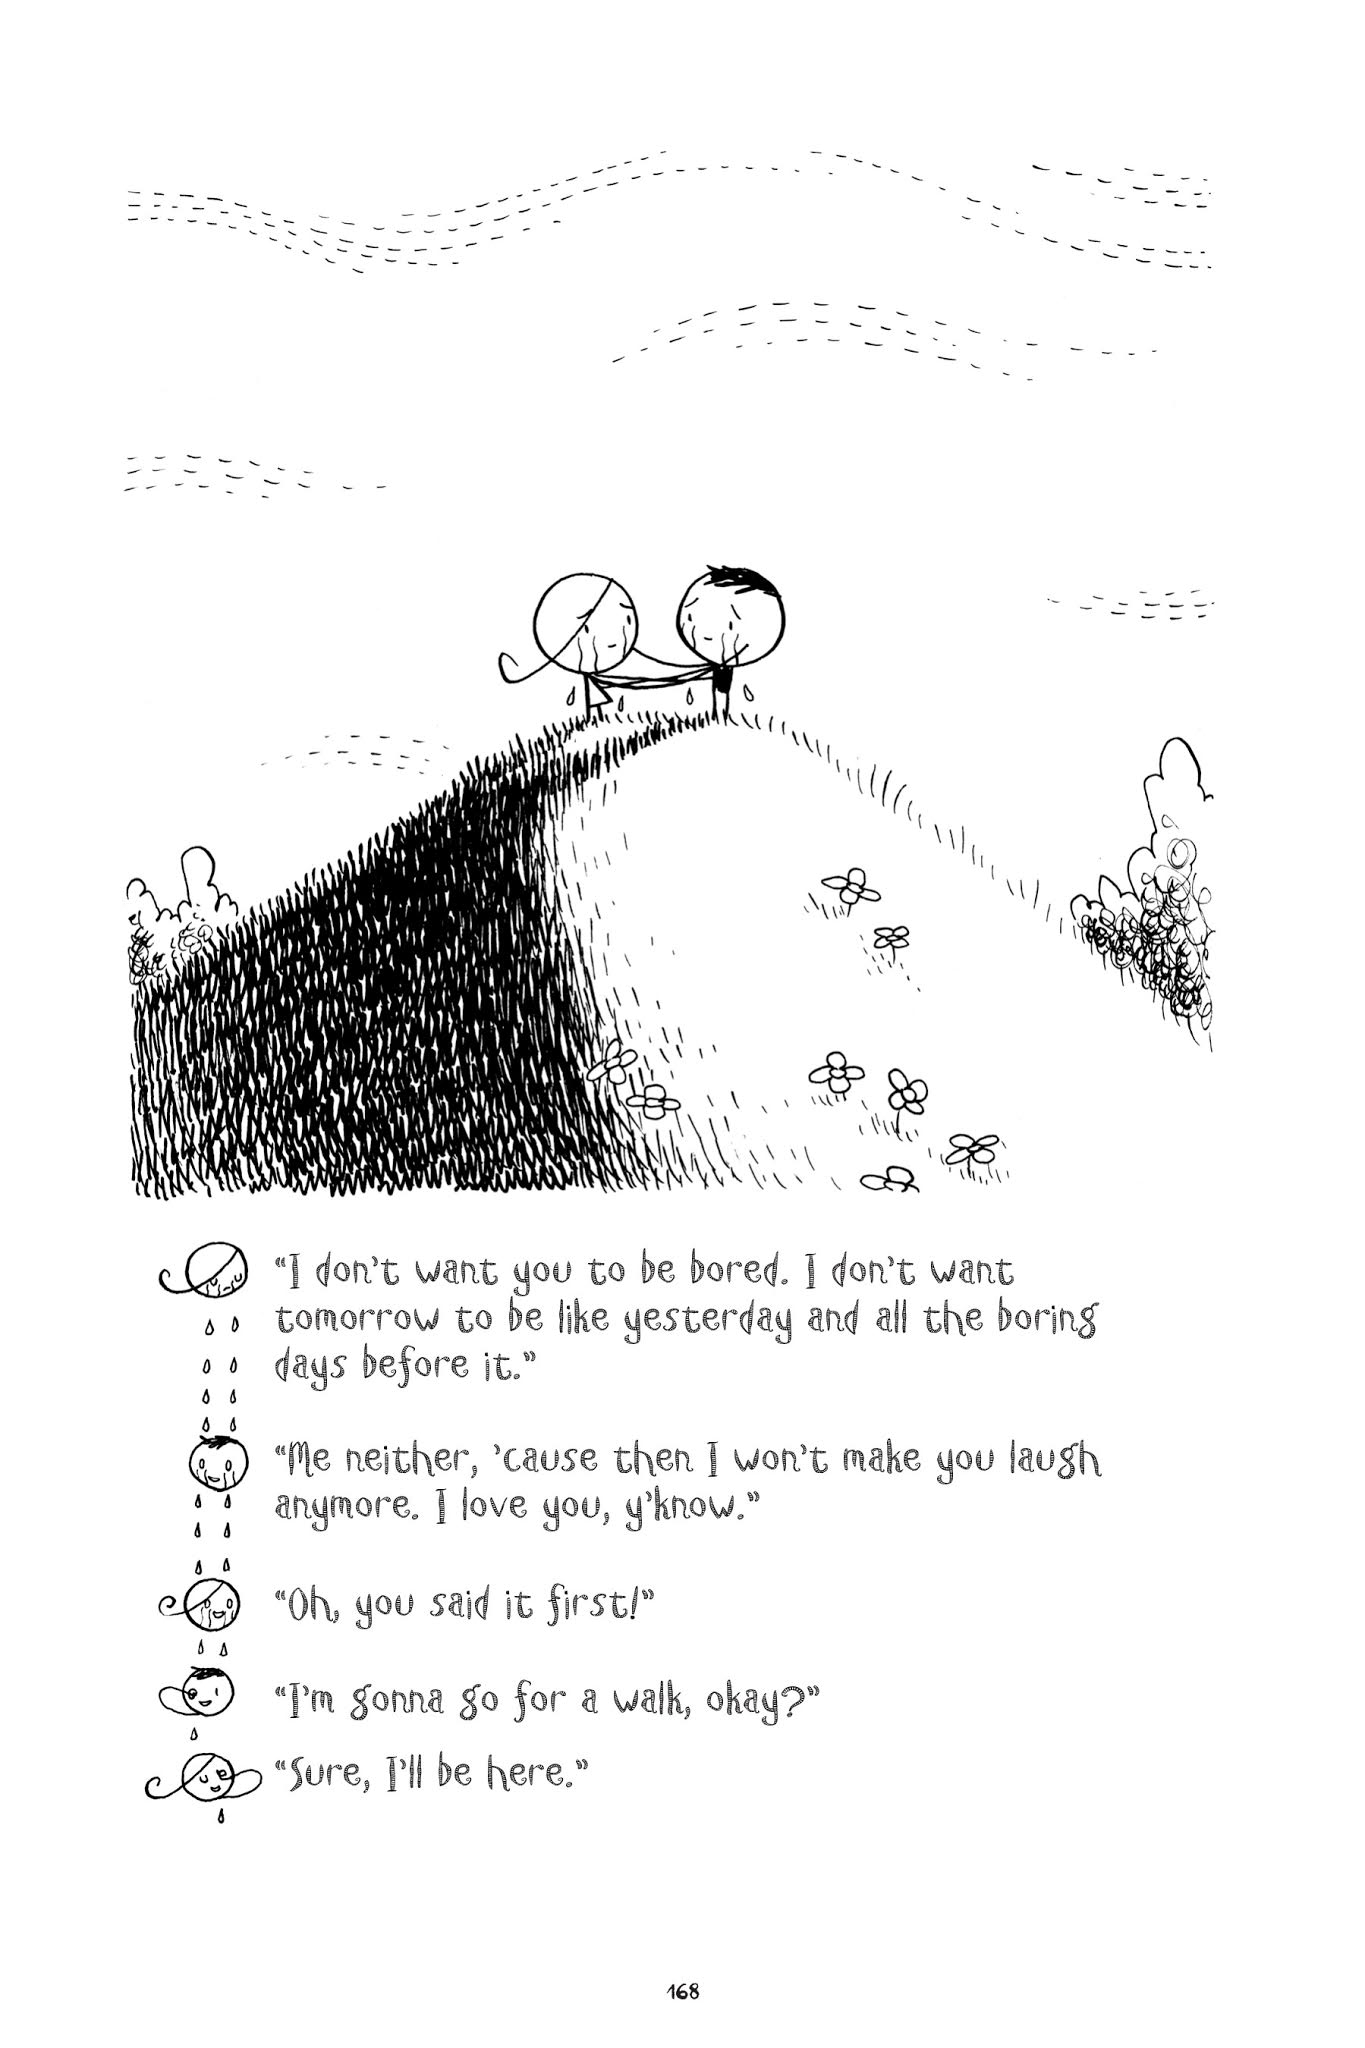 “I don’t want you to be bored. I don’t want
tomorrow to be like yesterday and all the boring
days before it.”
“Me neither, ’cause then I won’t make you laugh
anymore. I love you, y’know.”
“Oh, you said it first!”
“I’m gonna go for a walk, okay?”
“Sure, I’ll be here.”
168